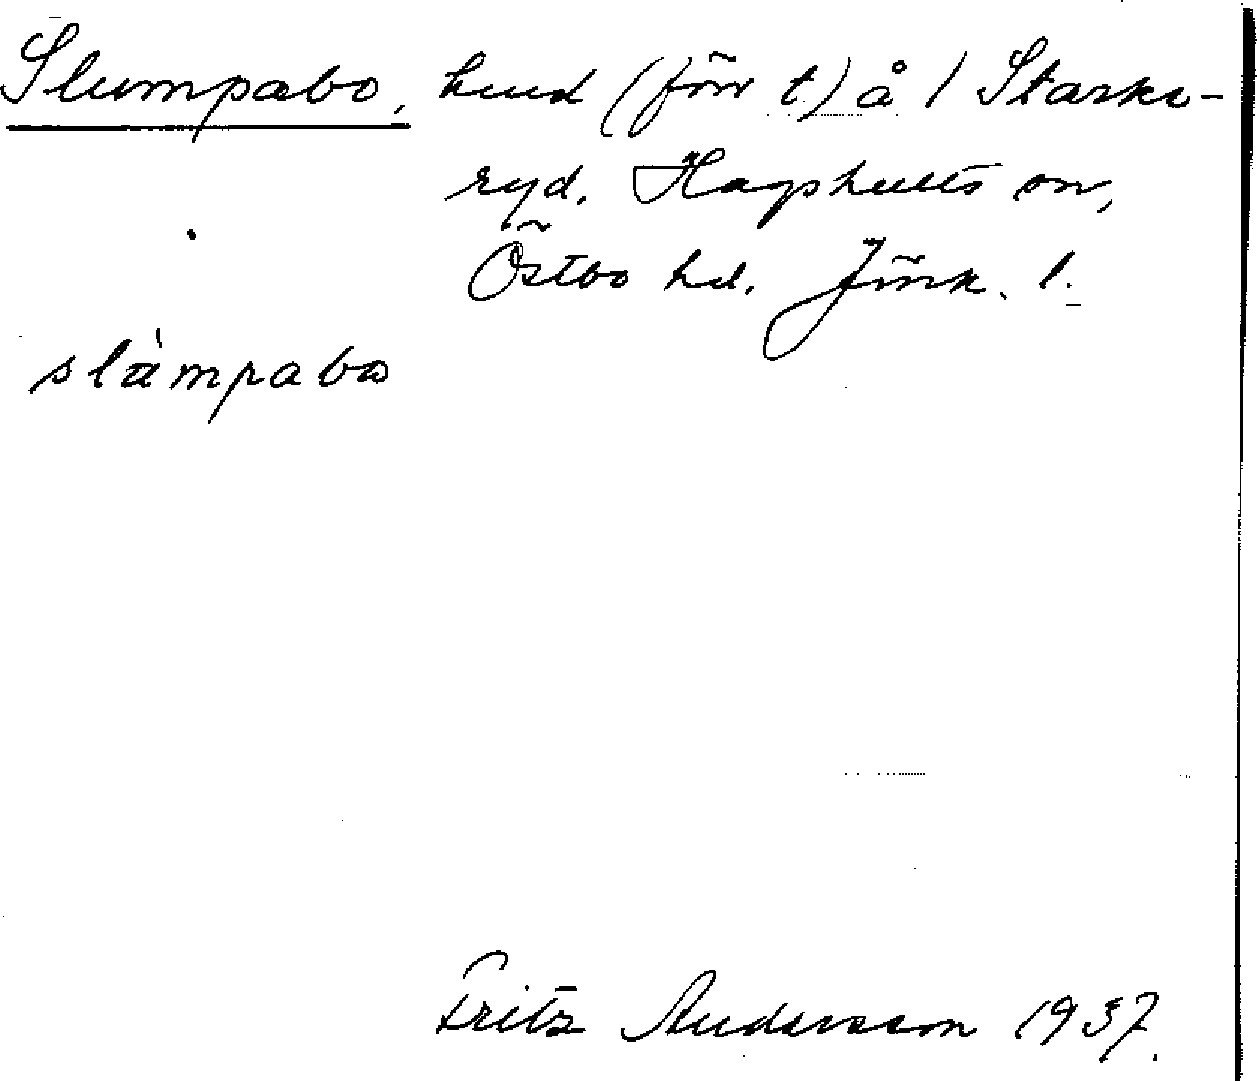 Slumpabo, lund (förr t.) å 1 Starke-
ryd, Hagshults sn,
Östbo hd. Jönk. l.
slàmpabo
Fritz Andersson 1937.